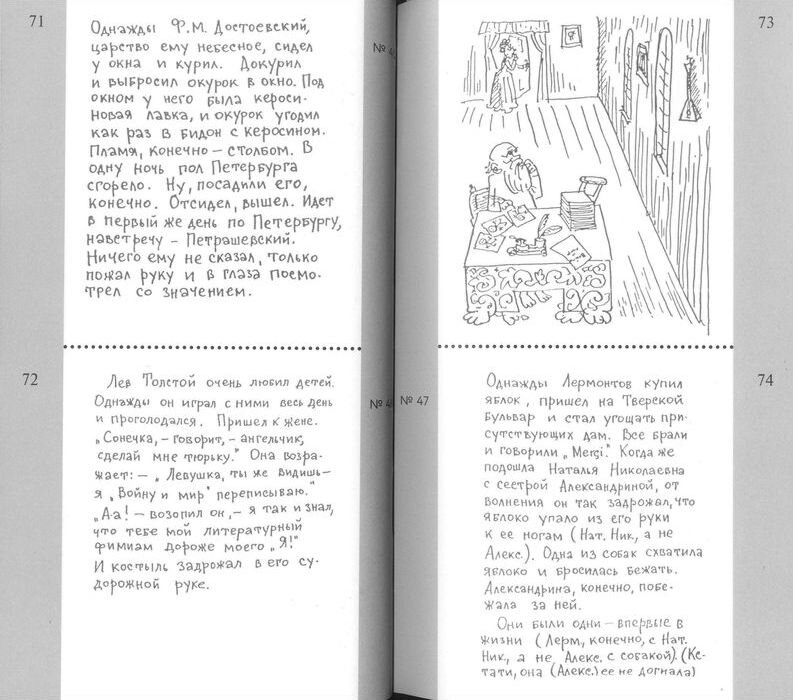 71
Однажды Ф.М. Достоевский,
царство ему небесное, сидел
у окна и курил. Докурил
и выбросил окурок в окно. Под
окном у него была кероси-
новая лавка, и окурок угодил
как раз в бидон с керосином.
Пламя, конечно – столбом. В
одну ночь пол Петербурга
сгорело. Ну, посадили его,
конечно. Отсидел, вышел. Идет
в первый же день по Петербургу,
навстречу – Петрашевский.
Ничего ему не сказал, только
пожал руку и в глаза посмо-
трел со значением.
72
Лев Толстой очень любил детей.
Однажды он играл с ними весь день
и проголодался. Пришел к жене.
„Сонечка, – говорит, – ангельчик,
сделай мне тюрьку." Она возра-
жает: – „Левушка, ты же видишь –
я „Войну и мир" переписываю."
„А-а! – возопил он, – я так и знал,
что тебе мой литературный
фимиам дороже моего „Я!"
И костыль задрожал в его су-
дорожной руке.
№
№
73
№ 47
74
Однажды Лермонтов купил
яблок, пришел на Тверской
бульвар и стал угощать при-
сутствующих дам. Все брали
и говорили „Merçi." Когда же
подошла Наталья Николаевна
с сестрой Александриной, от
волнения он так задрожал, что
яблоко упало из его руки
к ее ногам (Нат. Ник., а не
Алекс.). Одна из собак схватила
яблоко и бросилась бежать.
Александрина, конечно, побе-
жала за ней.
Они были одни – впервые в
жизни (Лерм., конечно, с Нат.
Ник., а не Алекс. с собакой). (Кс-
тати, она (Алекс.) ее не догнала)